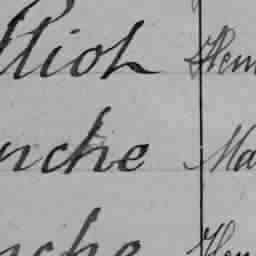 lliot Hen
nche Ma
nche Hen